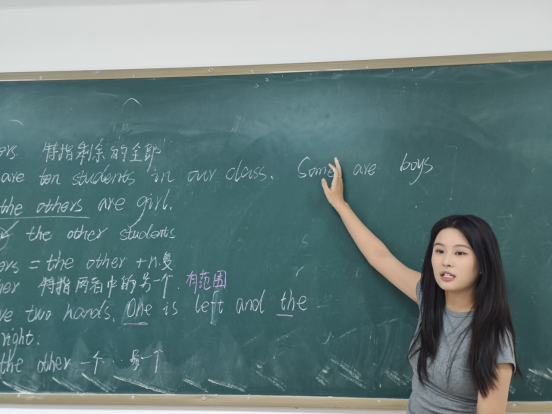 ers 特指剩余的全部
are ten students in our class. Some are boys
the others are girl.
the other students
ers = the other + n.复
her 特指两者中的另一个. 有范围
ve two hands. One is left and the
right.
the other 一个 另一个